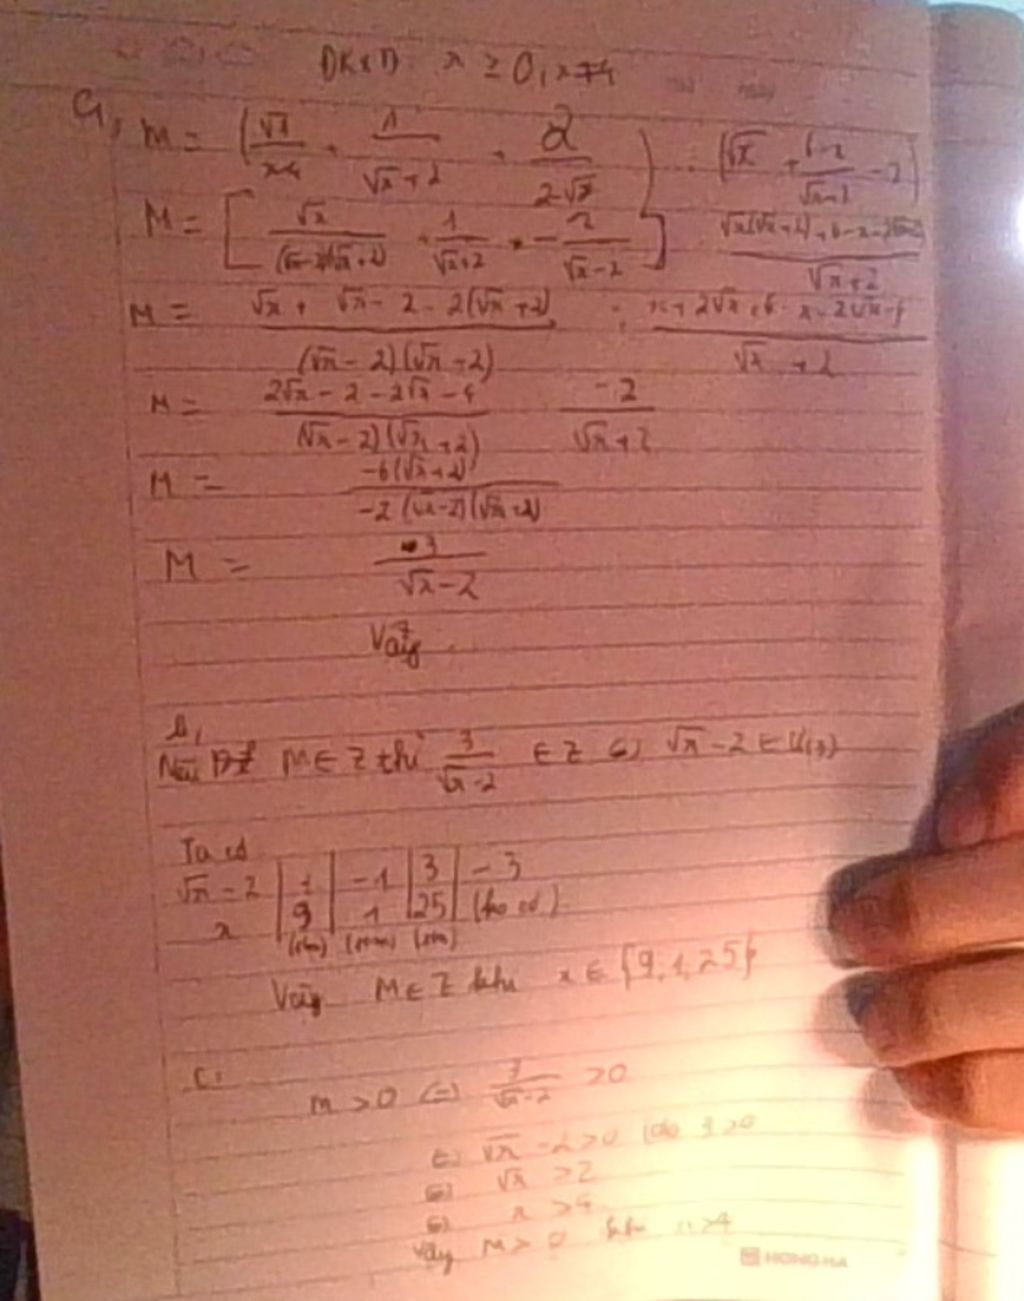 ĐKXĐ x ≥ 0, x ≠ 4
a, M = (√x/x-4 + 1/√x+2 + 2/2-√x) : (√x + 6-x/√x+2 - 2)
M = [√x/(√x-2)(√x+2) + 1/√x+2 - 2/√x-2] : √x(√x+2)+6-x-2(√x+2)/√x+2
M = √x + √x - 2 - 2(√x+2)/(√x-2)(√x+2) : x+2√x+6-x-2√x-4/√x+2
M = 2√x-2-2√x-4/(√x-2)(√x+2) -2/√x+2
M = -6(√x+2)/-2(√x-2)(√x+2)
M = 3/√x-2
Vậy
b,
Nếu M∈Z thì 3/√x-2 ∈ Z (=) √x-2 ∈ Ư(3)
Ta có
√x-2 | 1 | -1 | 3 | -3
x | 9 | 1 | 25 | (ko có)
(t/m) (t/m) (t/m)
Vậy M∈Z khi x ∈ {9,1,25}
c,
M > 0 (=) 3/√x-2 > 0
(=) √x-2>0 (do 3>0
(=) √x >2
(=) x >4
Vậy M > 0 khi x>4
HONG HA